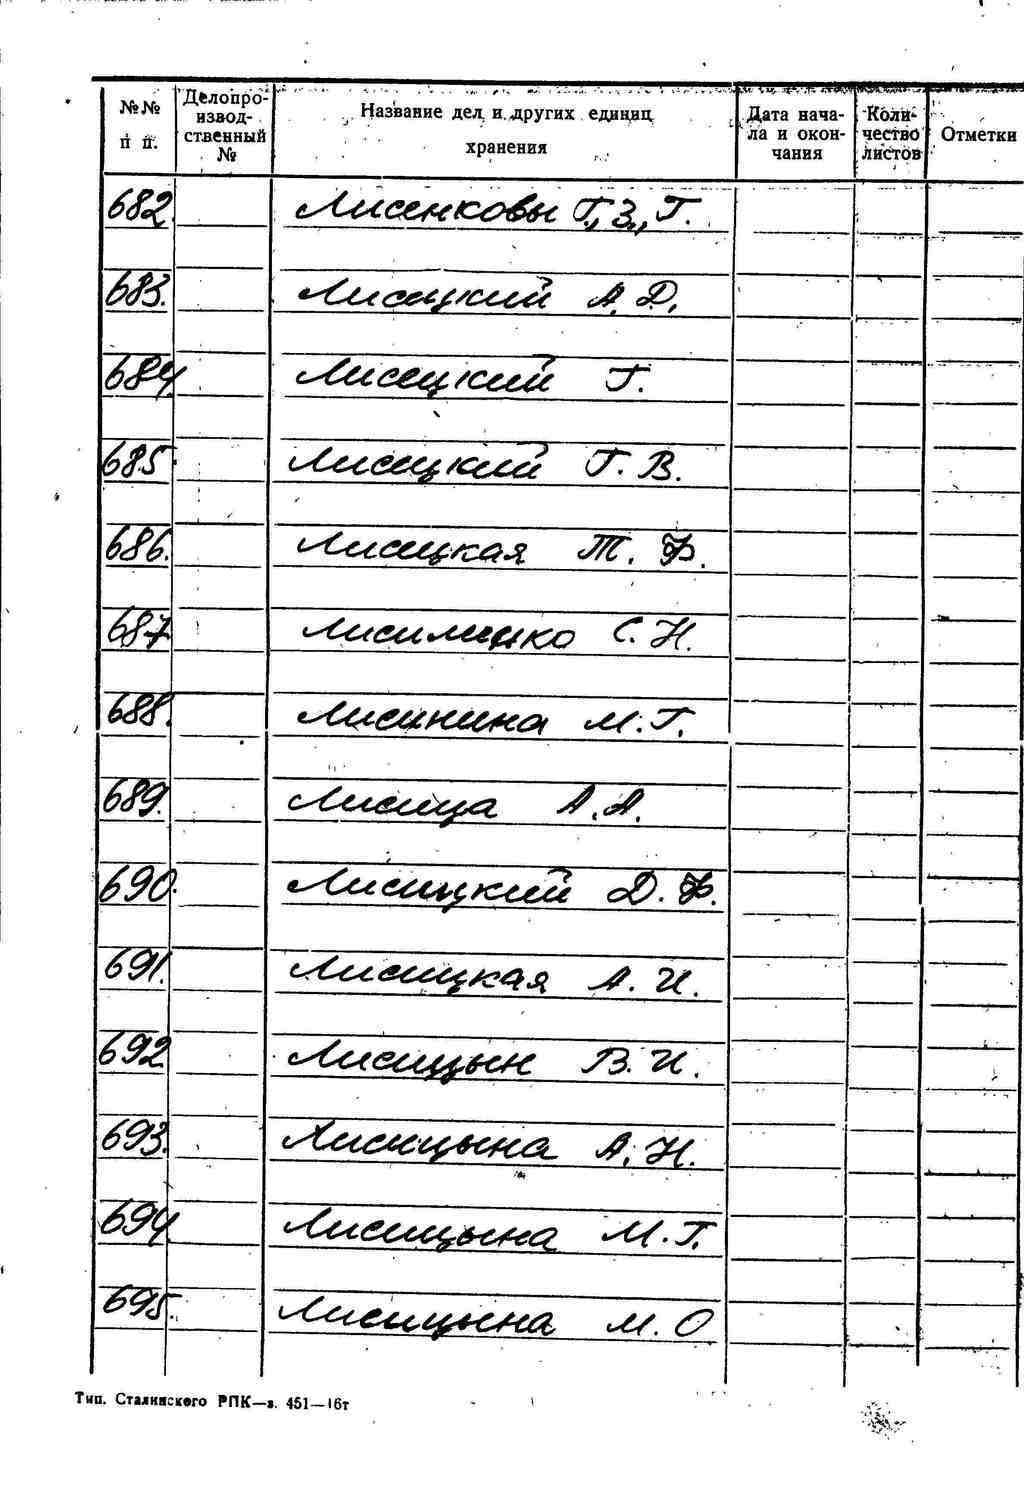 №№ п п. Делопроизводственный № Название дел и других единиц хранения Дата начала и окончания Количество листов Отметки
682. Лисенковы Г., З., Г.
683. Лисецкий А. Д.
684. Лисецкий Г.
685 Лисецкий Г. В.
686. Лисецкая Т. Ф.
687 С. Н.
688. Лисинина М. Г.
689. Лисица А. А.
690. Лисицкий Д. Ф.
691. Лисицкая А. И.
692 Лисицын В. И.
693. Лисицына А. Н.
694 Лисицына М. Г.
695. Лисицына М. О
Тип. Сталинского РПК—з. 451—16т